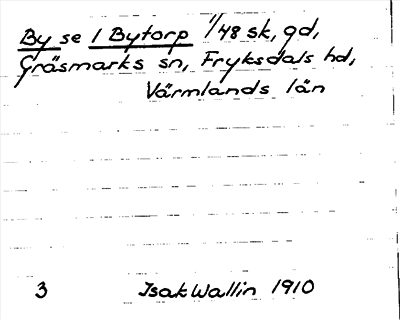 By se 1 Bytorp 1/48 sk, gd,
Gräsmarks sn, Fryksdals hd,
Värmlands län
3 Isak Wallin 1910